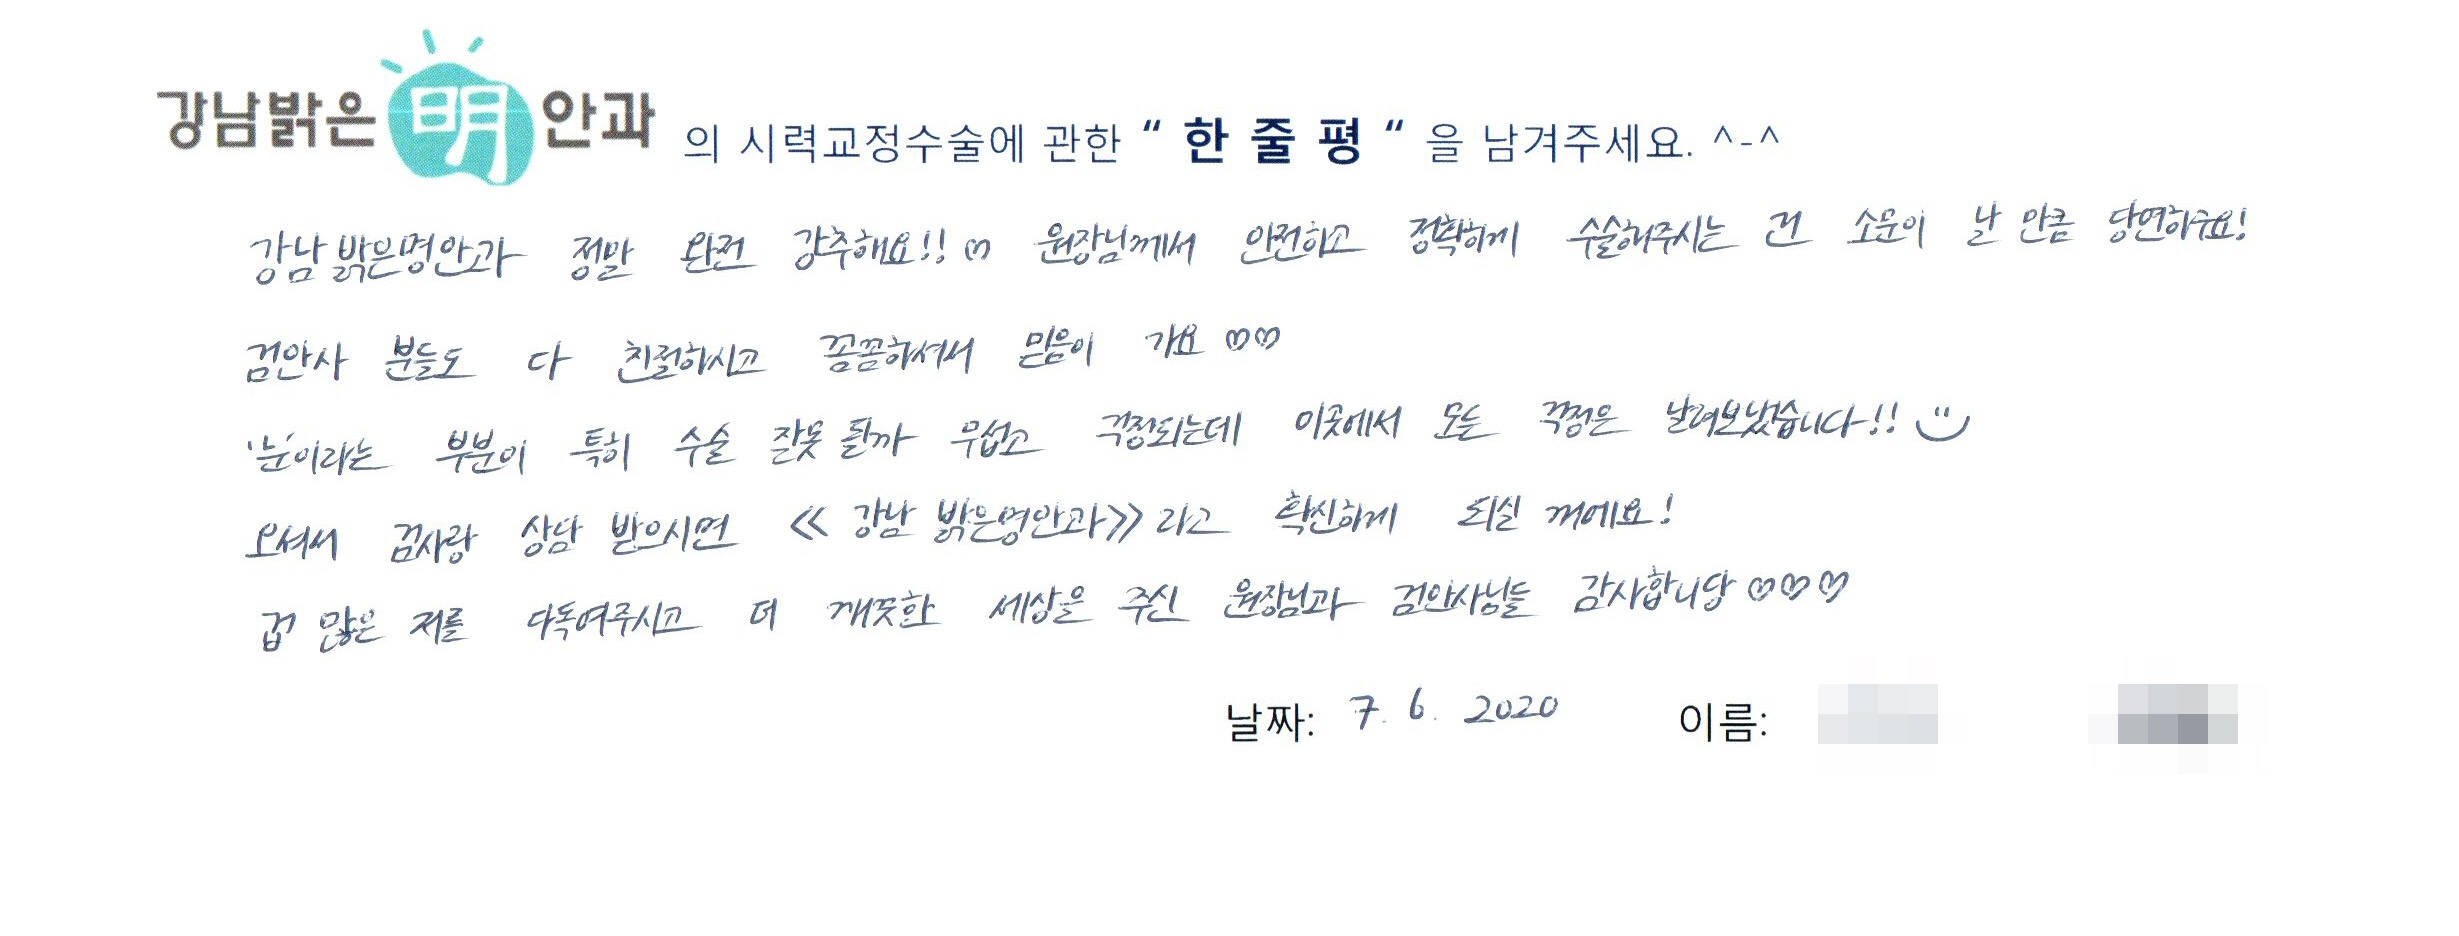 강남밝은明안과 의 시력교정수술에 관한 “ 한 줄 평 “ 을 남겨주세요. ^-^
강남밝은명안과 정말 완전 강추해요!! ♡ 원장님께서 안전하고 정확하게 수술해주시는 건 소문이 날 만큼 당연하구요!
검안사 분들도 다 친절하시고 꼼꼼하셔서 믿음이 가요 ♡♡
'눈'이라는 부분이 특히 수술 잘못 될까 무섭고 걱정되는데 이곳에서 모든 걱정은 날려보냈습니다!!
오셔서 검사랑 상담 받으시면 《 강남 밝은명안과》라고 확신하게 되실 꺼에요!
겁 많은 저를 다독여주시고 더 깨끗한 세상을 주신 원장님과 검안사님들 감사합니당 ♡♡♡
날짜: 7. 6. 2020 이름: